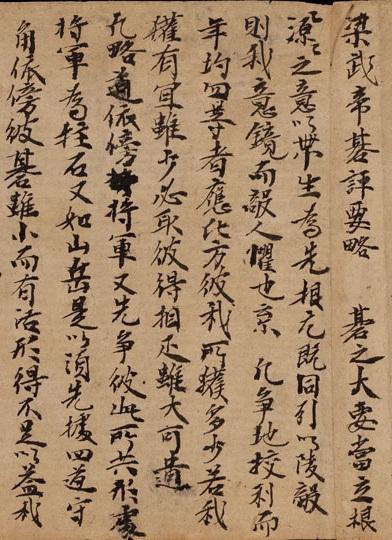 梁武帝碁評要略 碁之大要當立根
源之意以帶生為先根元既固引以陵敵
則我意鏡而敵人懼也 凡爭地校利而
年均四等者應比方彼我所獲多少若我
獲有宜雖少必取彼得相足雖大可遺
凡略道依傍將軍又先爭彼此所共形處
將軍為柱石又如山岳是以須先據四道守
角依傍彼碁雖小而有活形得不足以益我